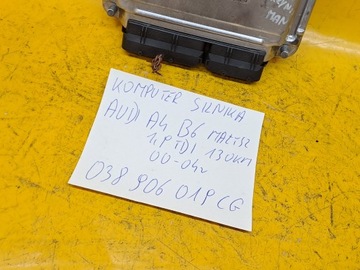 MAN
KOMPUTER SILNIKA
AUDI A4 B6
1,9TDI 130KM
00-04r
038 906 019 CG